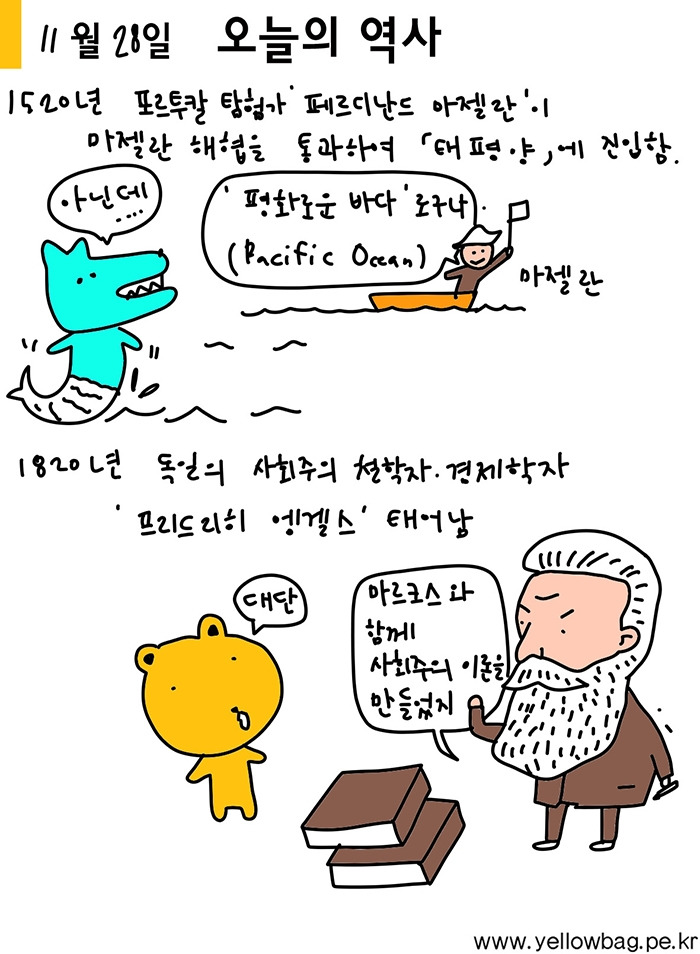 11월 28일 오늘의 역사
1520년 포르투칼 탐험가 '페르디난드 마젤란'이
마젤란 해협을 통과하여 「태평양」에 진입함.
아닌데
....
'평화로운 바다'로구나.
(Pacific Ocean)
마젤란
1820년 독일의 사회주의 철학자·경제학자
'프리드리히 엥겔스' 태어남
대단
마르크스와
함께
사회주의 이론을
만들었지
www.yellowbag.pe.kr